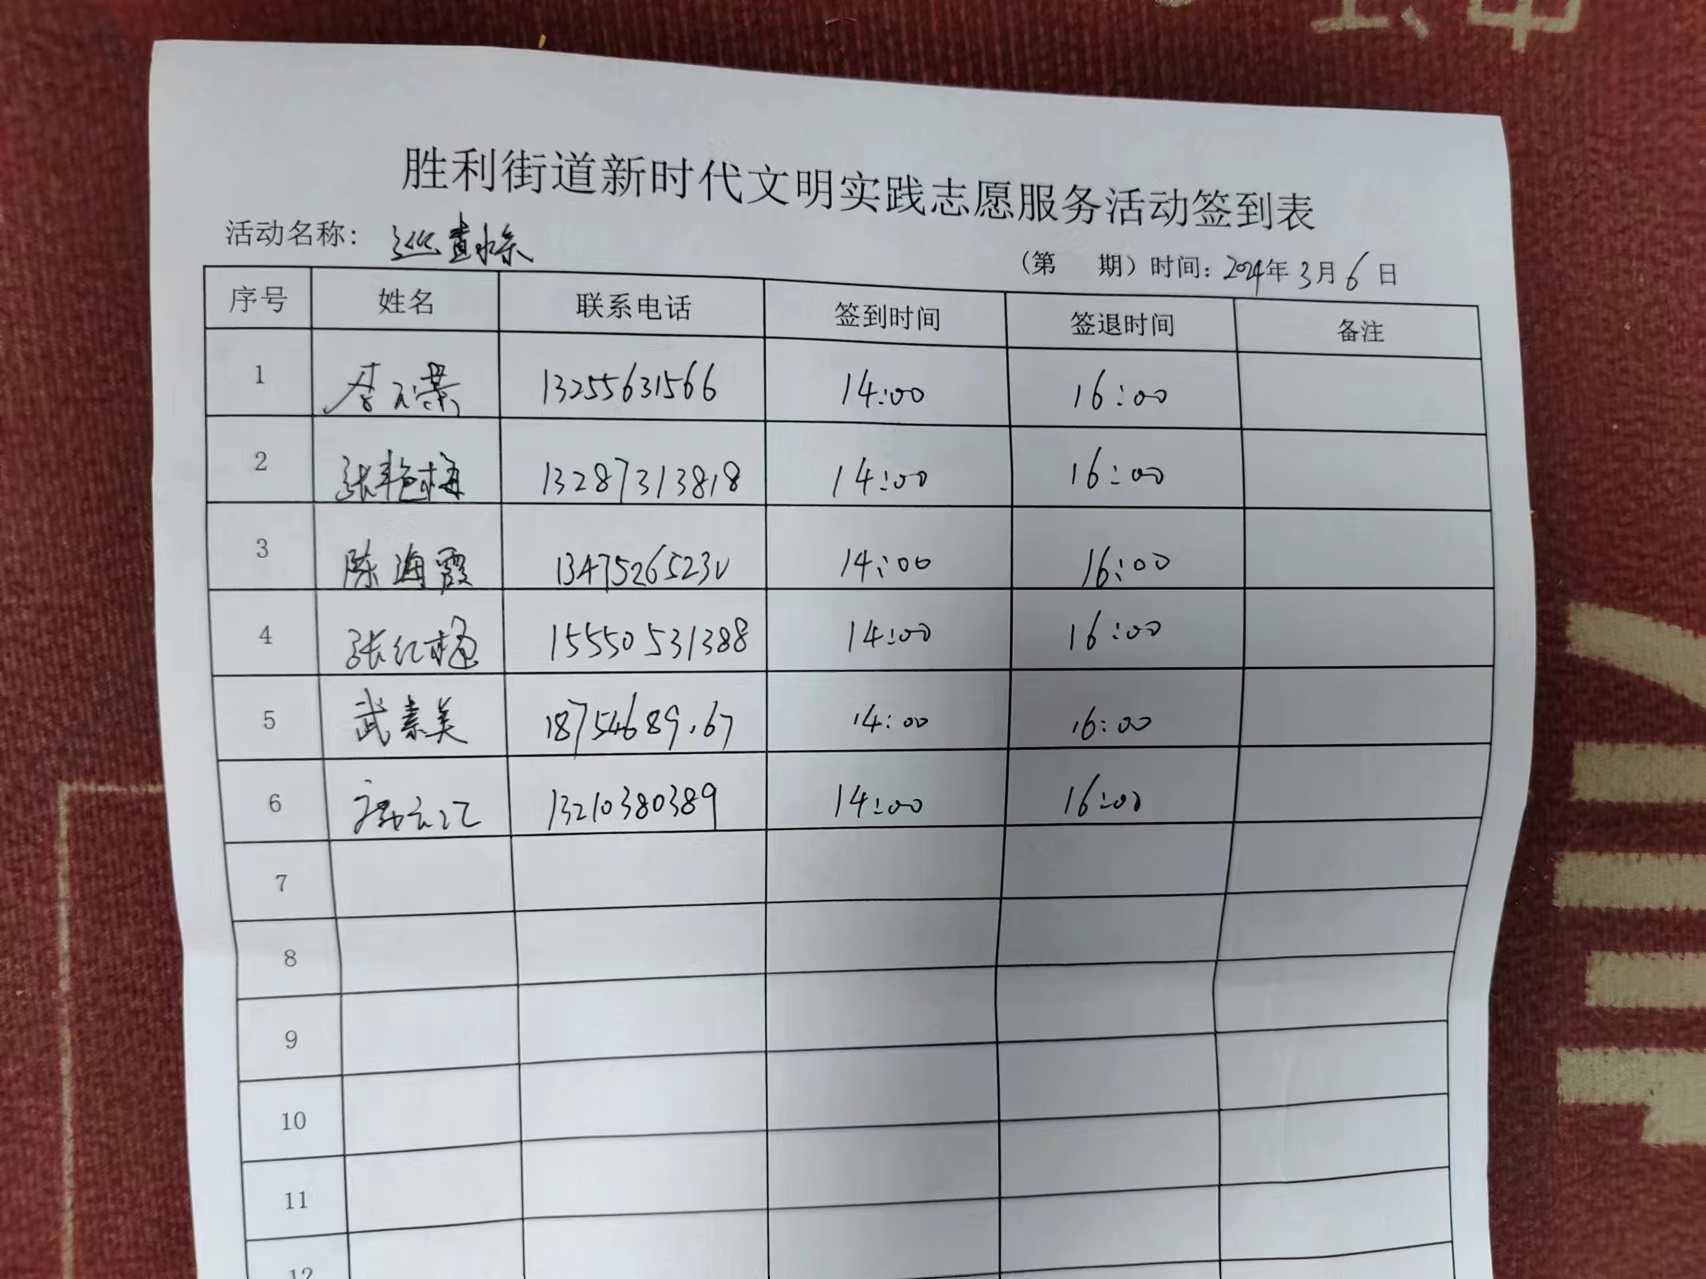 胜利街道新时代文明实践志愿服务活动签到表
活动名称：巡查
（第 期）时间：2024年3月6日
序号 姓名 联系电话 签到时间 签退时间 备注
1 李元荣 13255631566 14:00 16:00
2 张艳梅 13287313818 14:00 16:00
3 陈海霞 1347526523 14:00 16:00
4 张红梅 15550531388 14:00 16:00
5 武素美 18754689167 14:00 16:00
6 13210380389 14:00 16:00
7
8
9
10
11
12